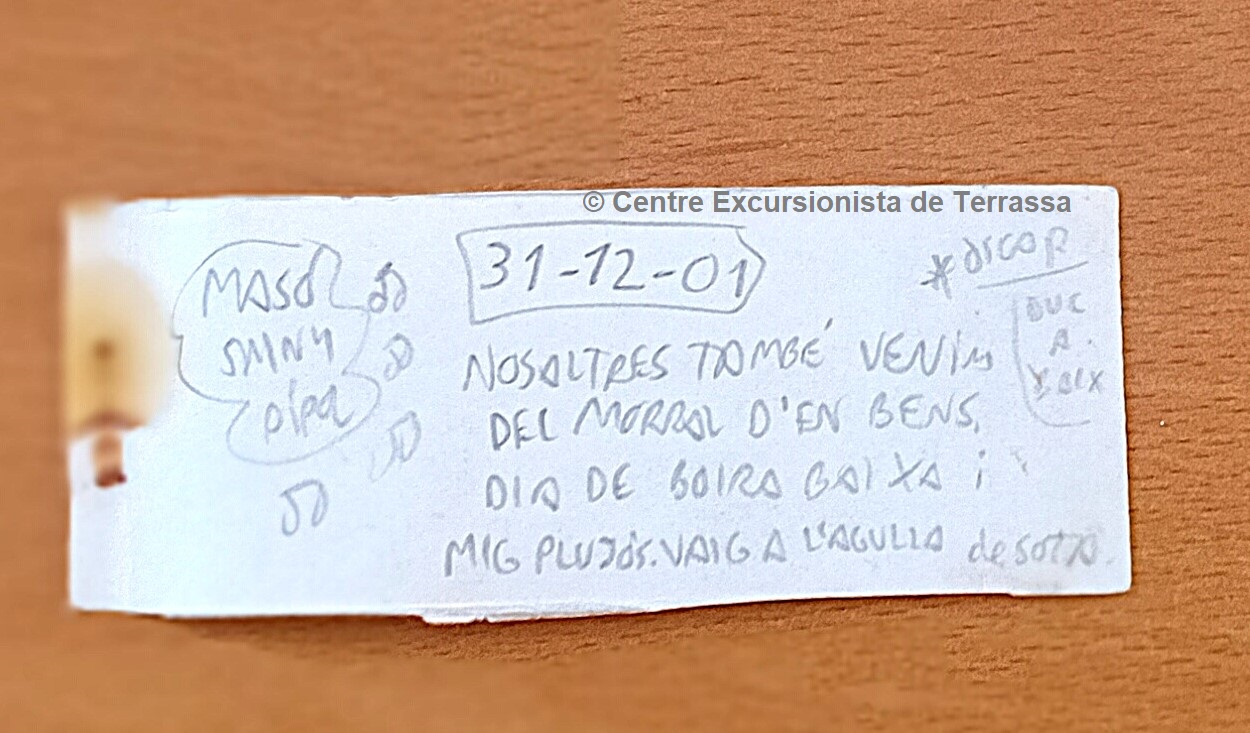 © Centre Excursionista de Terrassa
31-12-01
NOSALTRES TAMBÉ VENIM
DEL MORRAL D'EN BENS.
DIA DE BOIRA BAIXA i
MIG PLUJÓS. VAIG A L'AGULLA de sota.
MASÓ
PIPA
* OSCAR
A